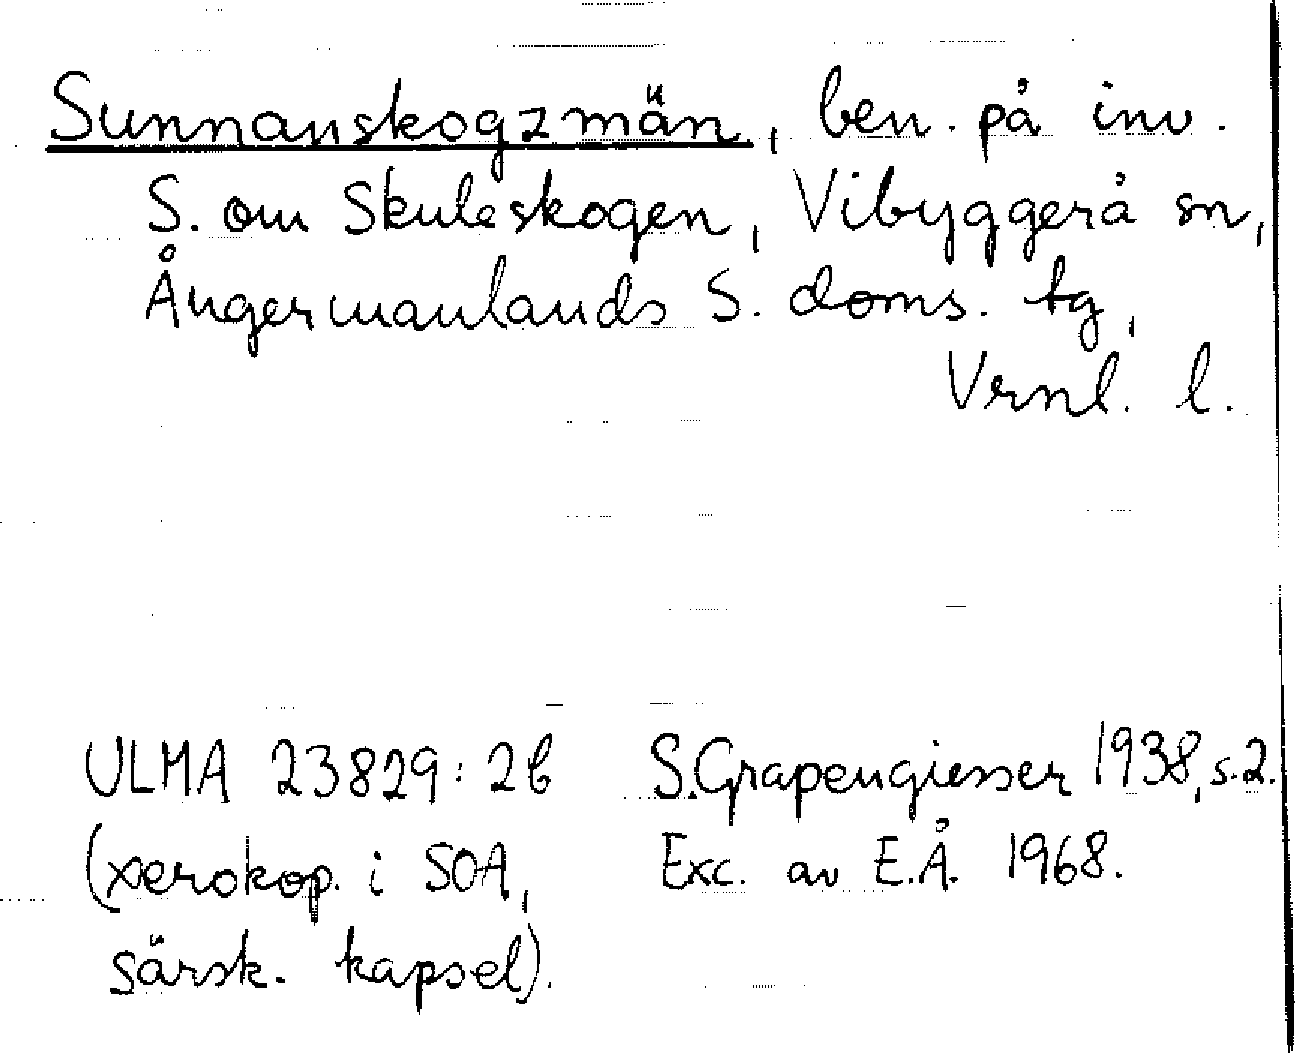 Sunnanskogzmän, ben. på inv.
S. om Skuleskogen, Vibyggerå sn,
Ångermanlands S. doms. tg,
Vrnl. l.
ULMA 23829:2b
(xerokop. i SOA,
särsk. kapsel).
S. Grapengiesser 1938, s. 2.
Exc. av E.Å. 1968.